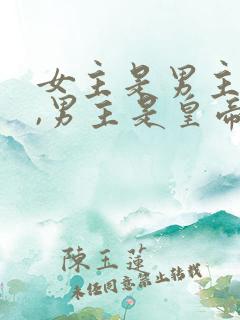 女主是男主
,男主是皇帝
陳玉蓮
未经同意禁止转载